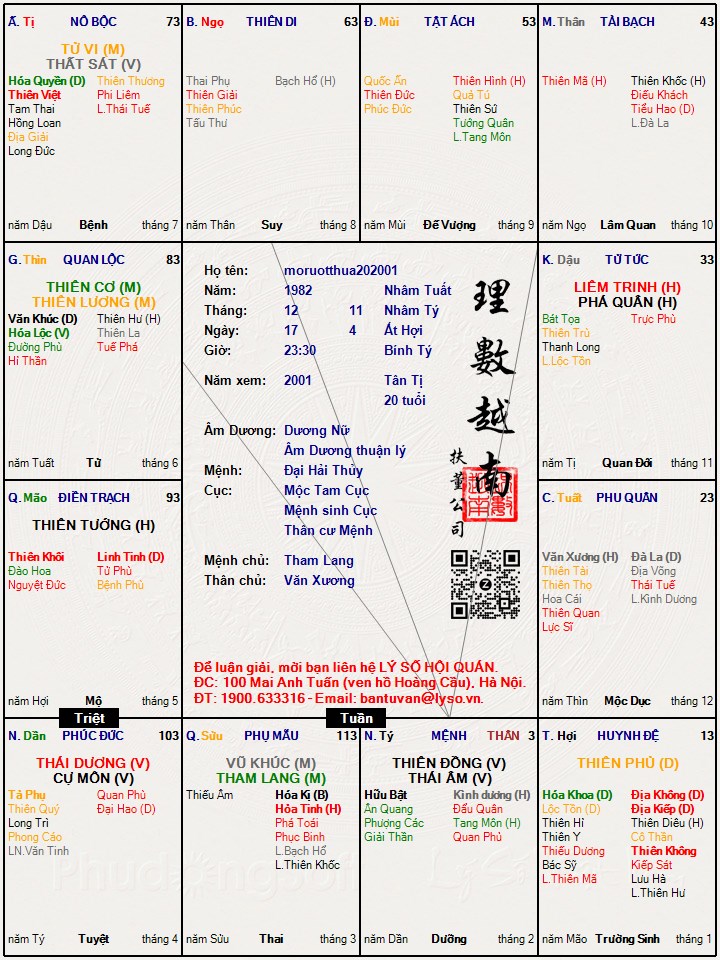 Ấ. Tị NÔ BỘC 73
TỬ VI (M)
THẤT SÁT (V)
Hóa Quyền (D) Thiên Thương
Thiên Việt Phi Liêm
Tam Thai L.Thái Tuế
Hồng Loan
Địa Giải
Long Đức
năm Dậu Bệnh tháng 7
B. Ngọ THIÊN DI 63
Thai Phụ Bạch Hổ (H)
Thiên Giải
Thiên Phúc
Tấu Thư
năm Thân Suy tháng 8
Đ. Mùi TẬT ÁCH 53
Quốc Ấn Thiên Hình (H)
Thiên Đức Quả Tú
Phúc Đức Thiên Sứ
Tướng Quân
L.Tang Môn
năm Mùi Đế Vượng tháng 9
M. Thân TÀI BẠCH 43
Thiên Mã (H) Thiên Khốc (H)
Điếu Khách
Tiểu Hao (D)
L.Đà La
năm Ngọ Lâm Quan tháng 10
G. Thìn QUAN LỘC 83
THIÊN CƠ (M)
THIÊN LƯƠNG (M)
Văn Khúc (D) Thiên Hư (H)
Hóa Lộc (V) Thiên La
Đường Phù Tuế Phá
Hỉ Thần
năm Tuất Tử tháng 6
Họ tên: moruotthua202001
Năm: 1982 Nhâm Tuất
Tháng: 12 11 Nhâm Tý
Ngày: 17 4 Ất Hợi
Giờ: 23:30 Bính Tý
Năm xem: 2001 Tân Tị
20 tuổi
Âm Dương: Dương Nữ
Âm Dương thuận lý
Mệnh: Đại Hải Thủy
Cục: Mộc Tam Cục
Mệnh sinh Cục
Thân cư Mệnh
Mệnh chủ: Tham Lang
Thân chủ: Văn Xương
理數越南
扶董公司
Để luận giải, mời bạn liên hệ LÝ SỐ HỘI QUÁN.
ĐC: 100 Mai Anh Tuấn (ven hồ Hoàng Cầu), Hà Nội.
ĐT: 1900.633316 - Email: bantuvan@lyso.vn.
K. Dậu TỬ TỨC 33
LIÊM TRINH (H)
PHÁ QUÂN (H)
Bát Tọa Trực Phù
Thiên Trù
Thanh Long
L.Lộc Tồn
năm Tị Quan Đới tháng 11
Q. Mão ĐIỀN TRẠCH 93
THIÊN TƯỚNG (H)
Thiên Khôi Linh Tinh (D)
Đào Hoa Tử Phù
Nguyệt Đức Bệnh Phù
năm Hợi Mộ tháng 5
C. Tuất PHU QUÂN 23
Văn Xương (H) Đà La (D)
Thiên Tài Địa Võng
Thiên Thọ Thái Tuế
Hoa Cái L.Kình Dương
Thiên Quan
Lực Sĩ
năm Thìn Mộc Dục tháng 12
Triệt
Tuần
N. Dần PHÚC ĐỨC 103
THÁI DƯƠNG (V)
CỰ MÔN (V)
Tả Phụ Quan Phù
Thiên Quý Đại Hao (D)
Long Trì
Phong Cáo
LN.Văn Tinh
năm Tý Tuyệt tháng 4
Q. Sửu PHỤ MẪU 113
VŨ KHÚC (M)
THAM LANG (M)
Thiếu Âm Hóa Kị (B)
Hỏa Tinh (H)
Phá Toái
Phục Binh
L.Bạch Hổ
L.Thiên Khốc
năm Sửu Thai tháng 3
N. Tý MỆNH THÂN 3
THIÊN ĐỒNG (V)
THÁI ÂM (V)
Hữu Bật Kình dương (H)
Ân Quang Đẩu Quân
Phượng Các Tang Môn (H)
Giải Thần Quan Phủ
năm Dần Dưỡng tháng 2
T. Hợi HUYNH ĐỆ 13
THIÊN PHỦ (D)
Hóa Khoa (D) Địa Không (D)
Lộc Tồn (D) Địa Kiếp (D)
Thiên Hỉ Thiên Diêu (H)
Thiên Y Cô Thần
Thiếu Dương Thiên Không
Bác Sỹ Kiếp Sát
L.Thiên Mã Lưu Hà
L.Thiên Hư
năm Mão Trường Sinh tháng 1